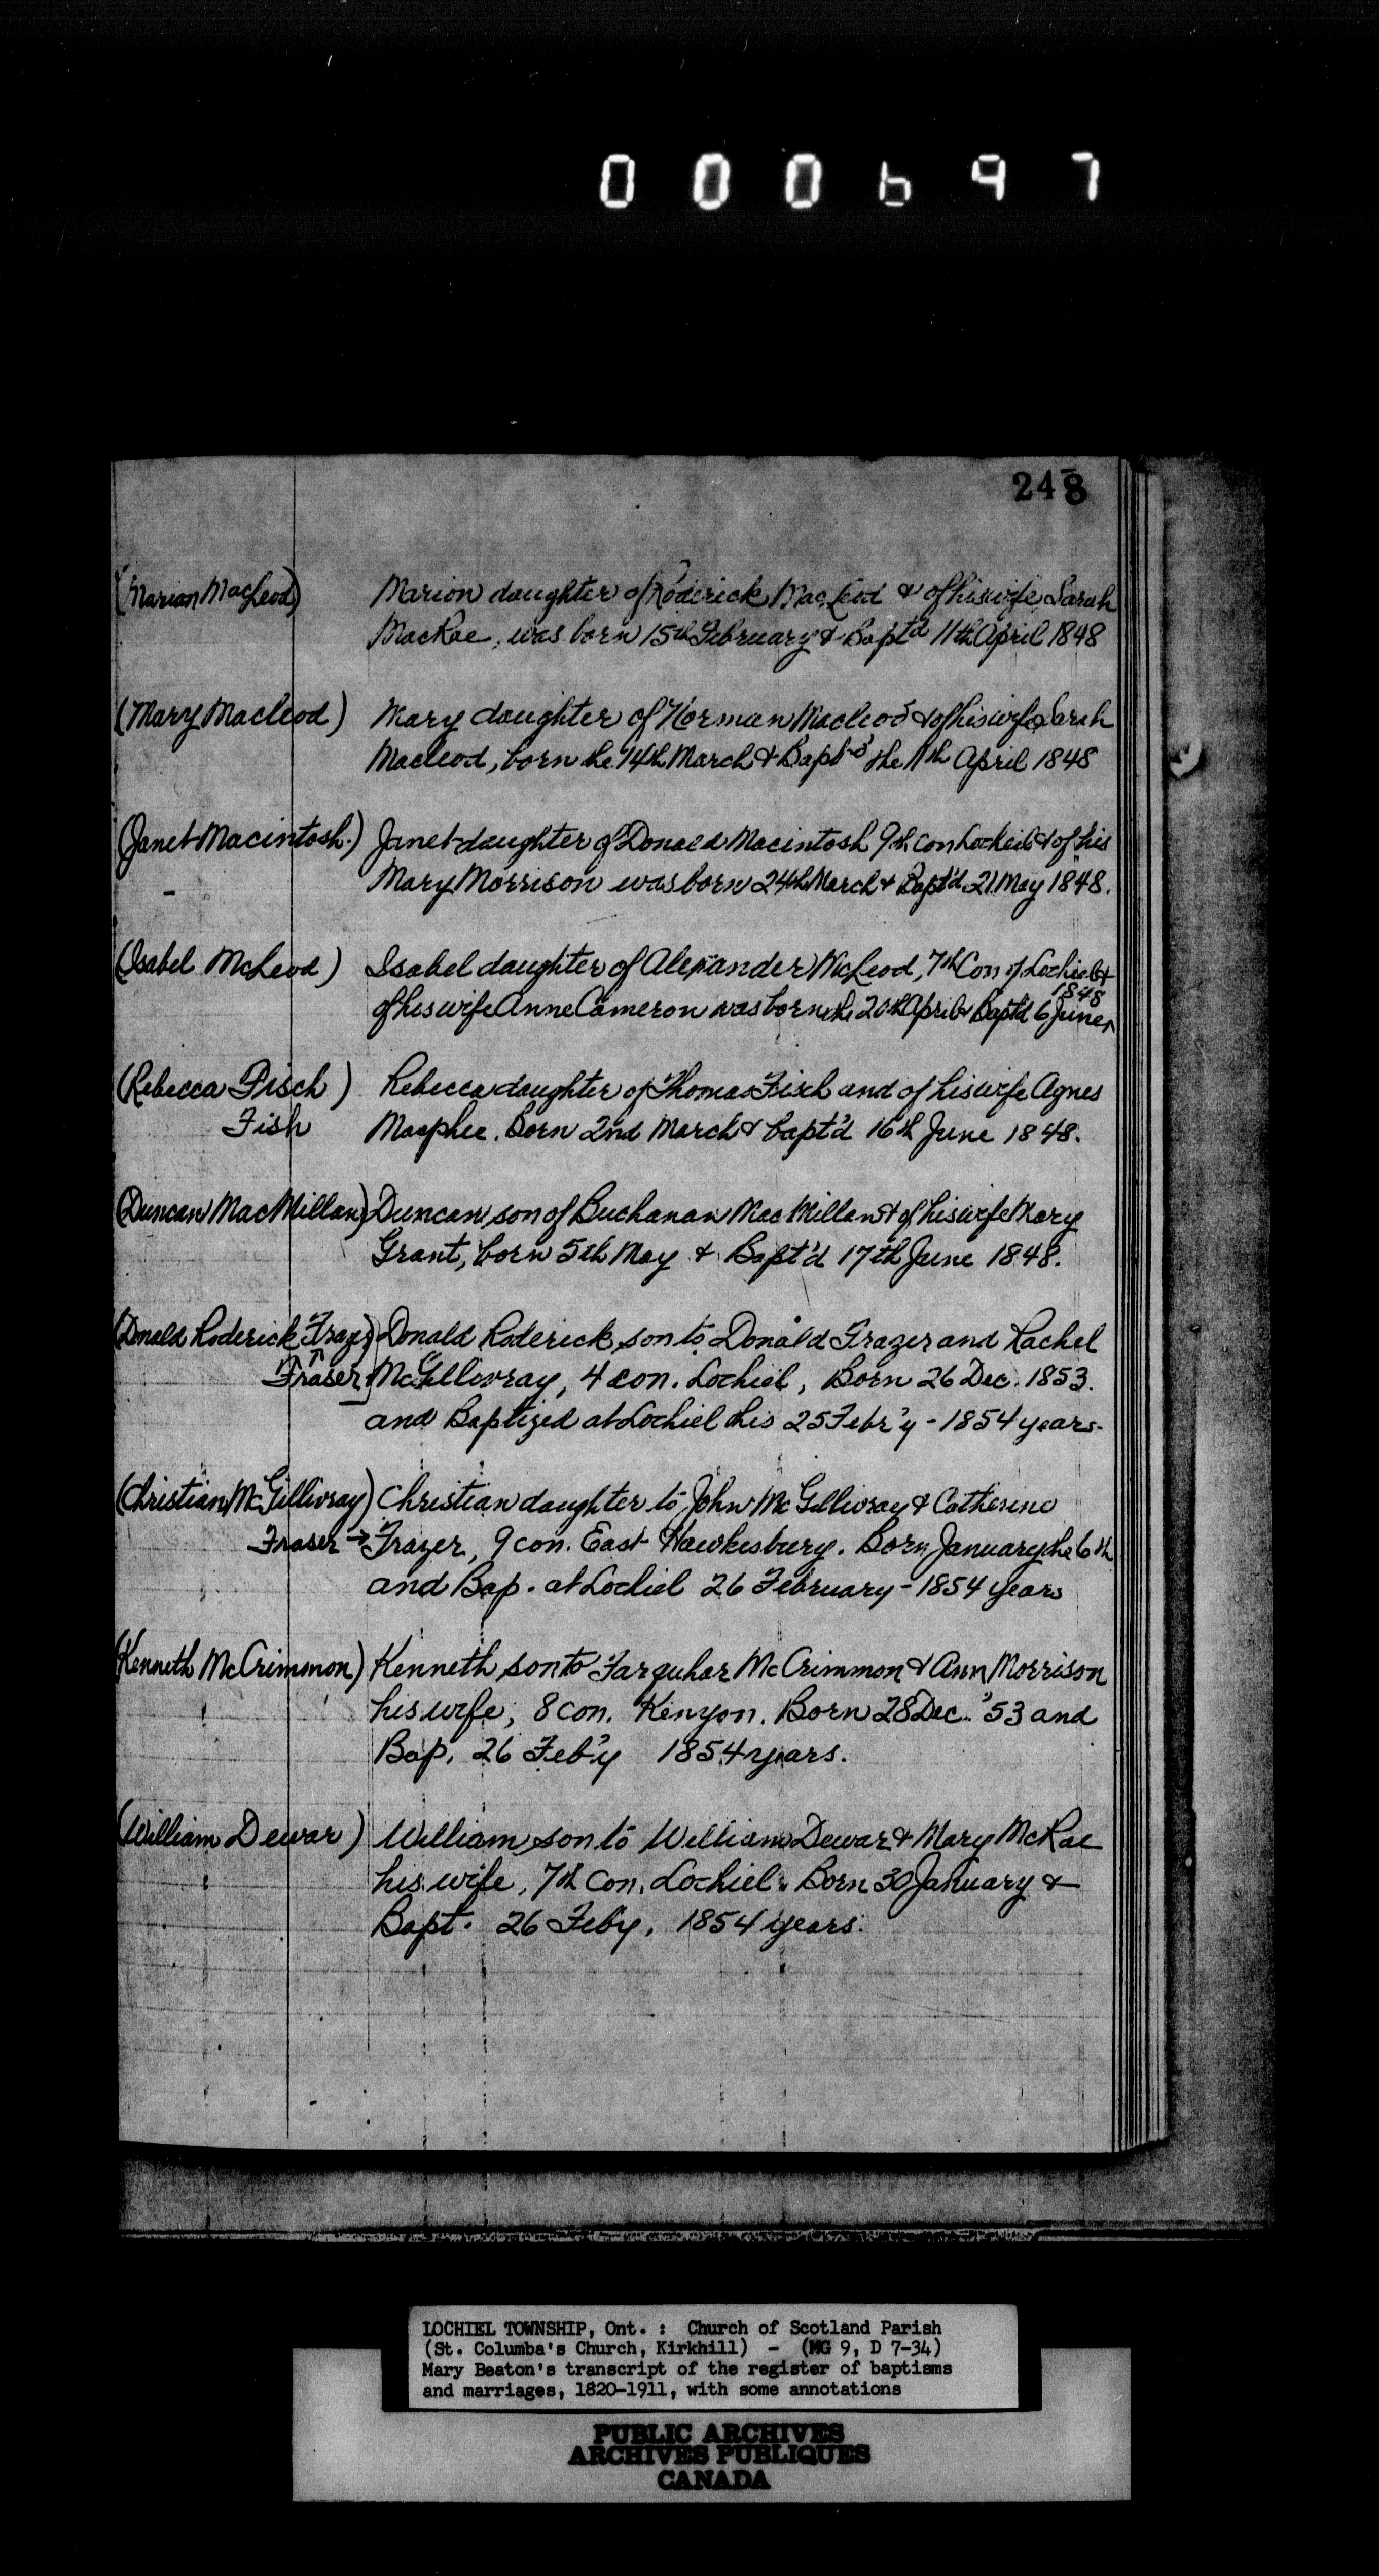 000697
248
(Marian MacLeod) Marion daughter of Roderick MacLeod & of his wife Sarah
MacRae, was born 15th February & Bapt'd 11th April 1848
(Mary Macleod) Mary daughter of Norman Macleod & of his wife Sarah
Macleod, born the 14th March & Bapt'd the 11th April 1848
(Janet Macintosh.) Janet daughter of Donald Macintosh 9th Con Locheil & of his
Mary Morrison was born 24th March & Bapt'd 21 May 1848.
(Isabel McLeod) Isabel daughter of Alexander McLeod, 7th Con of Lochiel &
of his wife Anne Cameron was born the 20th April & Bapt'd 6 June ^ 1848
(Rebecca Fisch) Rebecca daughter of Thomas Fisch and of his wife Agnes
Fish Macphee. Born 2nd March & bapt'd 16th June 1848.
(Duncan MacMillan) Duncan son of Buchanan MacMillan & of his wife Mary
Grant, born 5th May & Bapt'd 17th June 1848.
(Donald Roderick Frazer) Donald Roderick son to Donald Frazer and Rachel
Fraser McGillivray, 4 con. Lochiel, Born 26 Dec. 1853.
and Baptized at Lochiel this 25 Febr'y - 1854 years.
(Christian McGillivray) Christian daughter to John McGillivray & Catherine
Fraser → Frazer, 9 con. East Hawkesbury. Born January the 6th
and Bap. at Lochiel 26 February - 1854 years
(Kenneth McCrimmon) Kenneth son to Farquhar McCrimmon & Ann Morrison
his wife, 8 con. Kenyon. Born 28 Dec. '53 and
Bap. 26 Feb'y 1854 years.
(William Dewar) William son to William Dewar & Mary McRae
his wife, 7th Con. Lochiel. Born 30 January &
Bapt. 26 Feby, 1854 years.
LOCHIEL TOWNSHIP, Ont. : Church of Scotland Parish
(St. Columba's Church, Kirkhill) - (MG 9, D 7-34)
Mary Beaton's transcript of the register of baptisms
and marriages, 1820-1911, with some annotations
PUBLIC ARCHIVES
ARCHIVES PUBLIQUES
CANADA